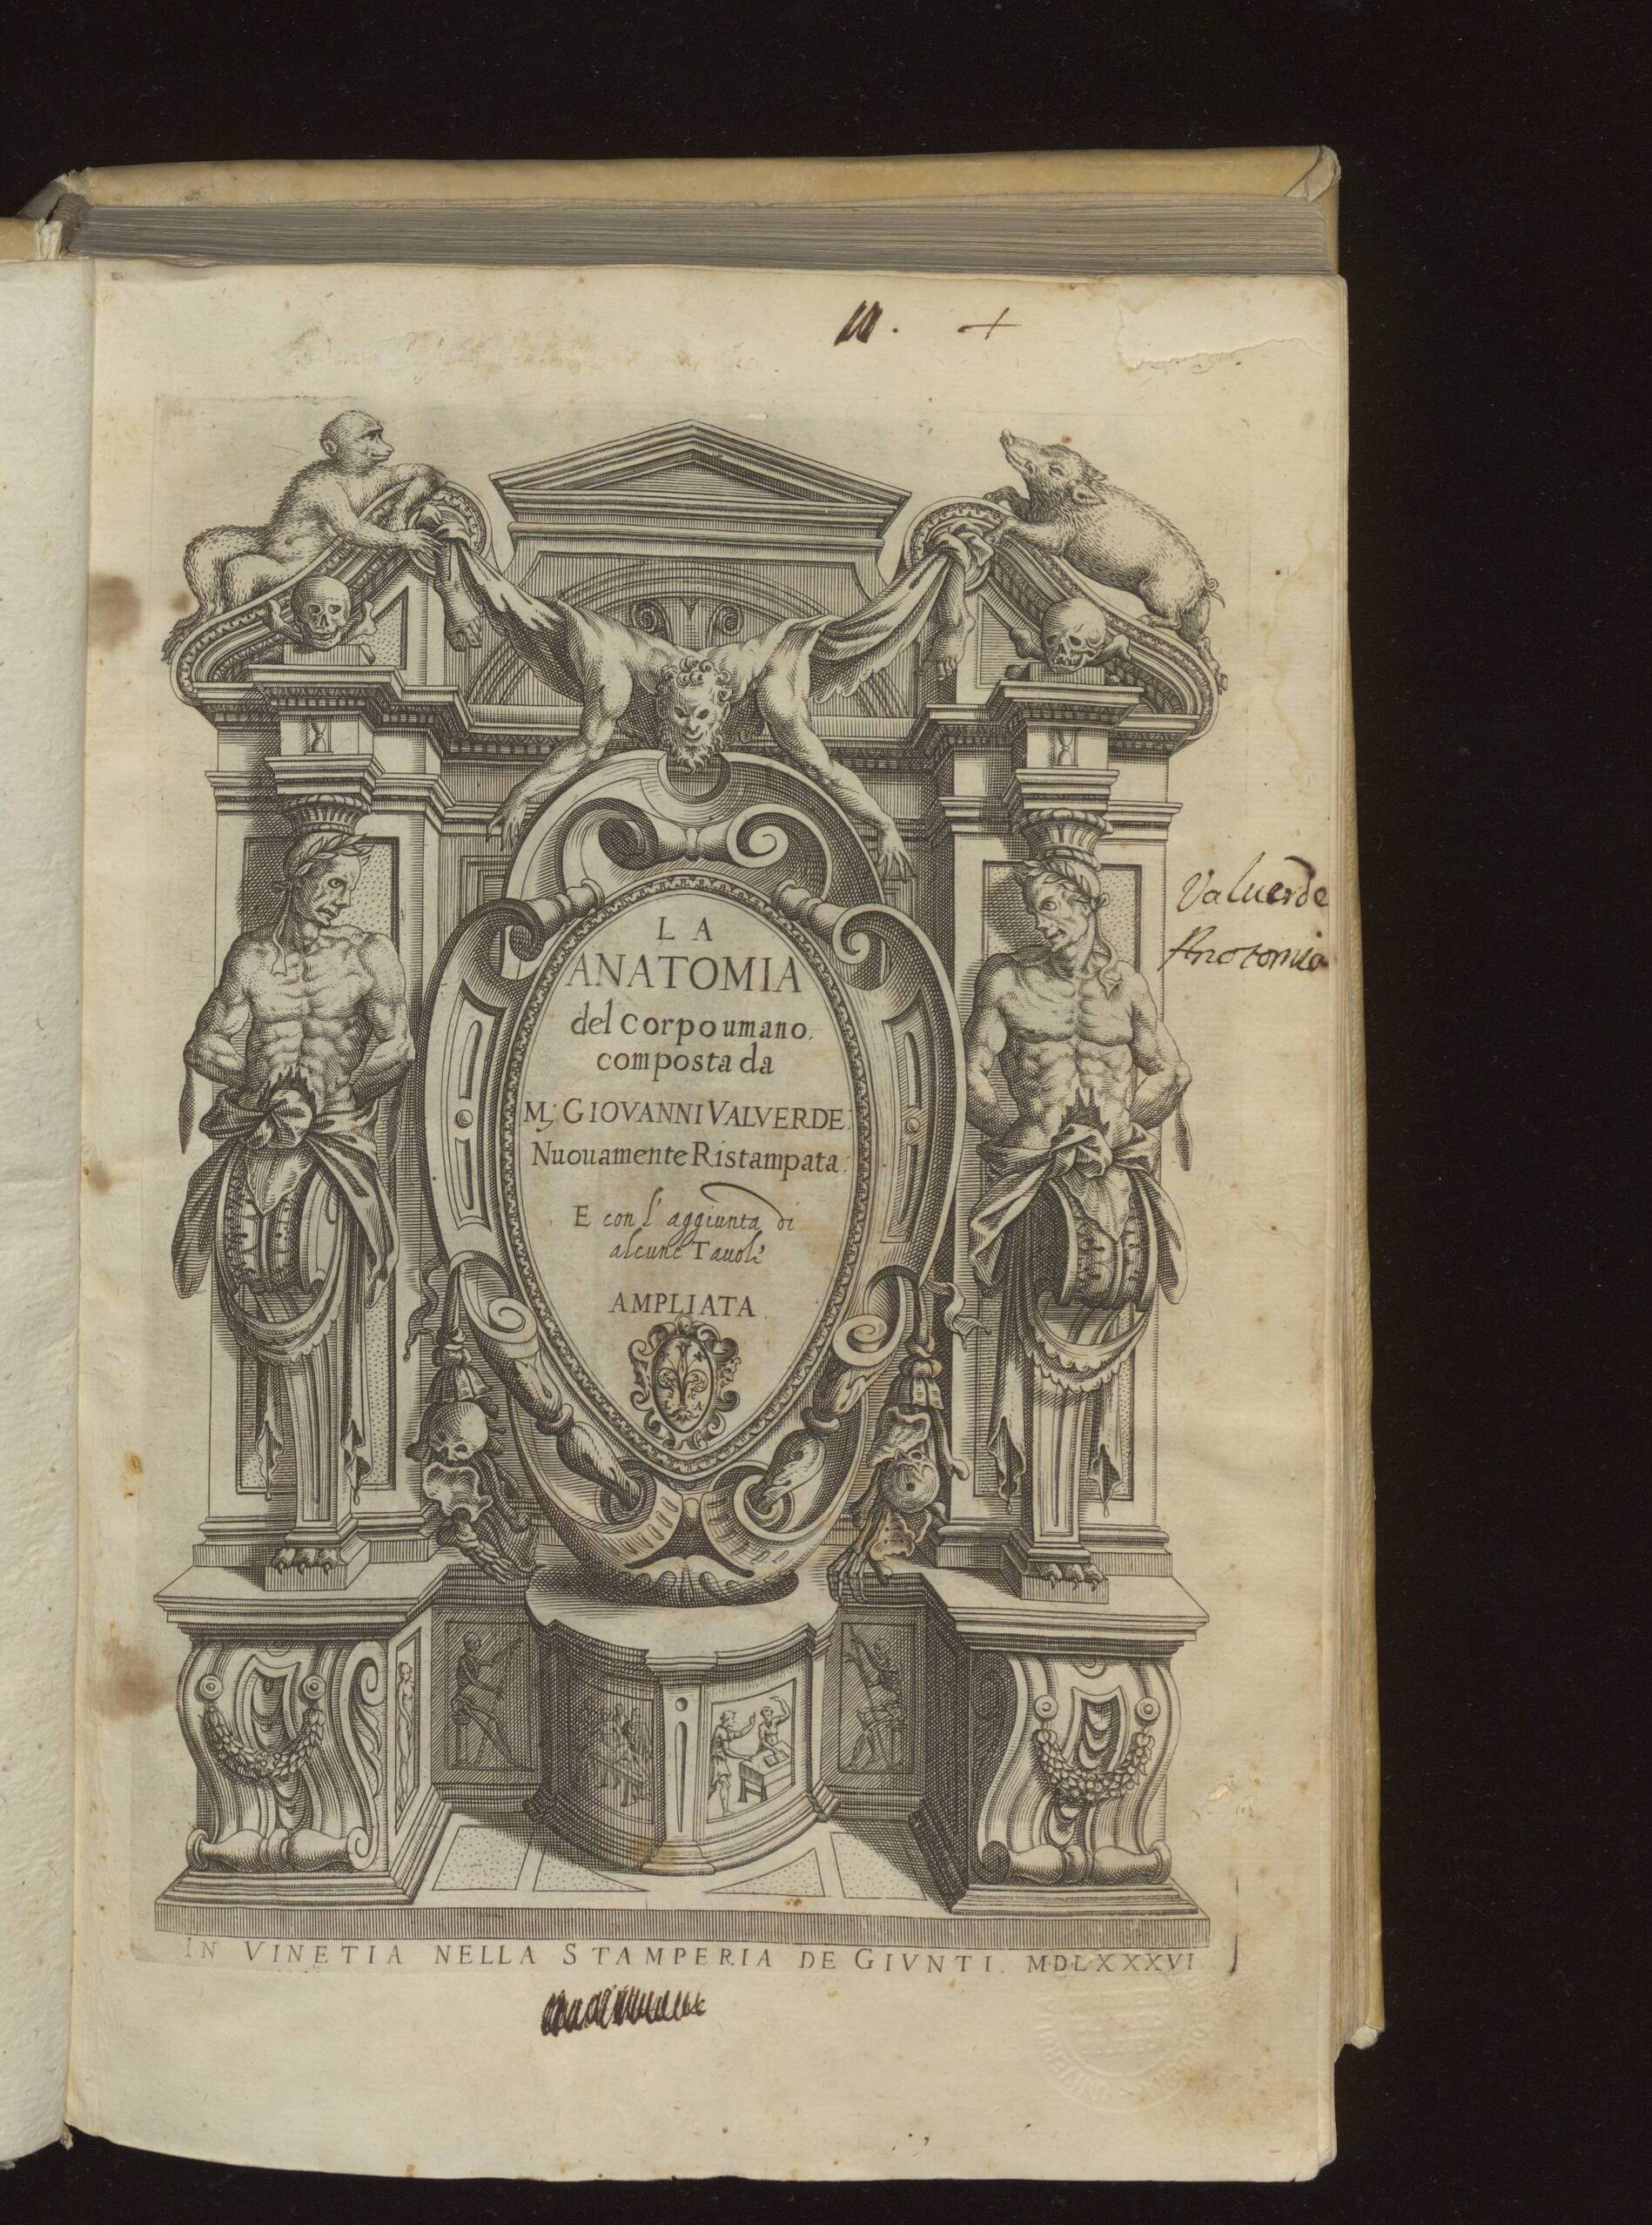 LA
ANATOMIA
del Corpo umano.
composta da
M; GIOVANNI VALVERDE.
Nuouamente Ristampata.
E con l'aggiunta di
alcune Tauole
AMPLIATA.
Valuerde
Anotomia
IN VINETIA NELLA STAMPERIA DE GIVNTI. MDLXXXVI